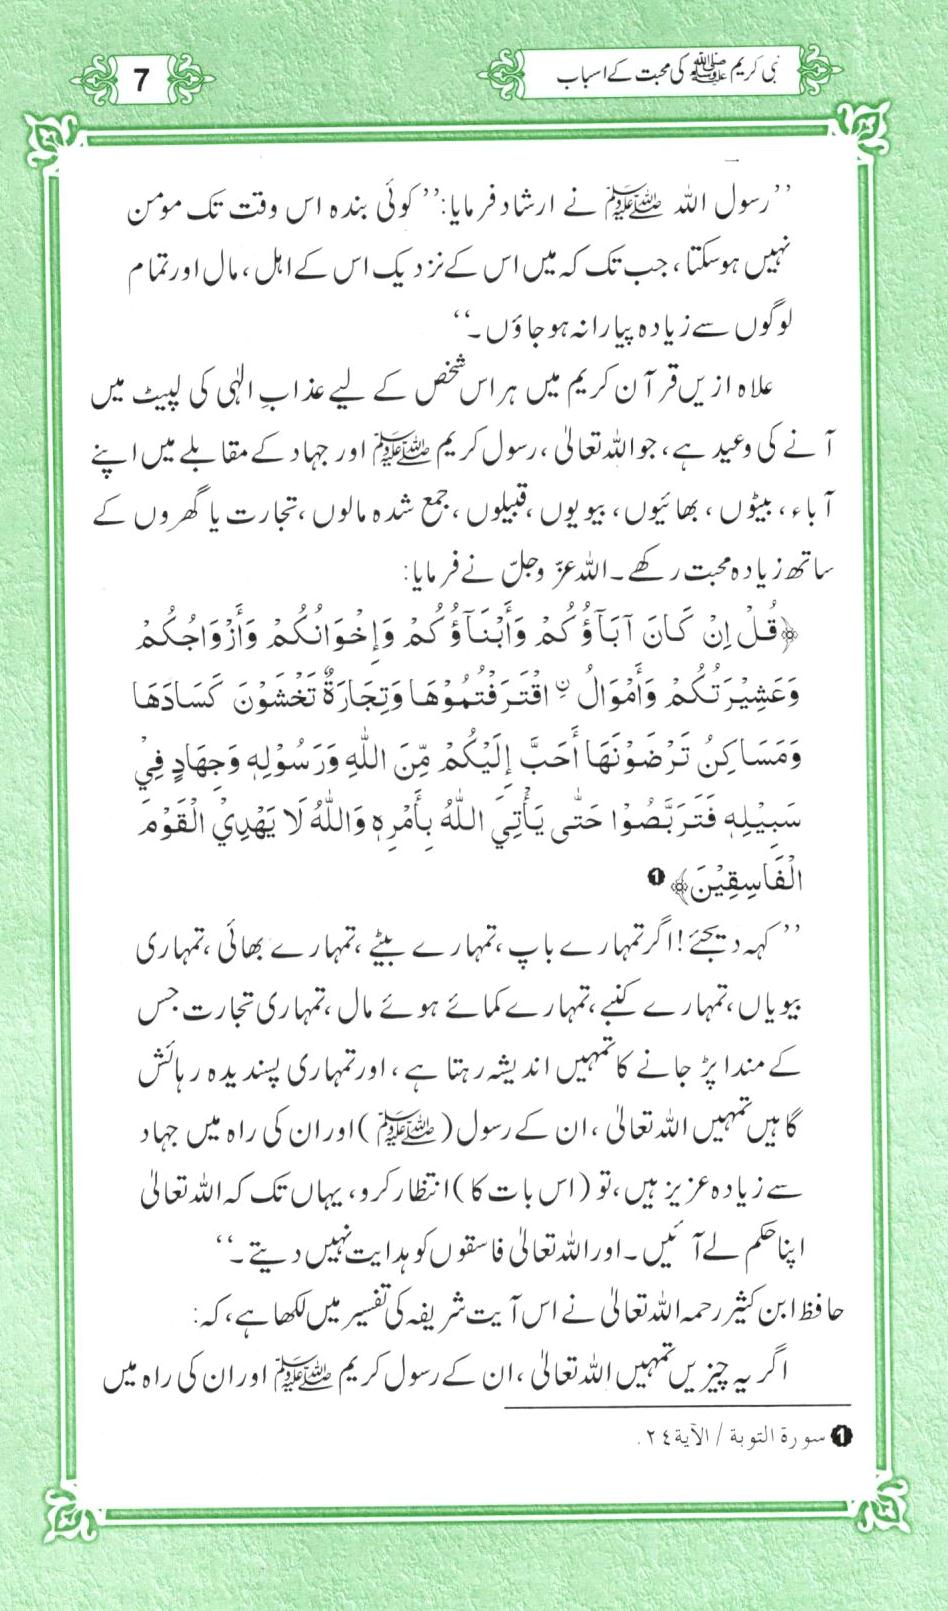 نبی کریم ﷺ کی محبت کے اسباب
7
’’رسول اللہ ﷺ نے ارشاد فرمایا:’’ کوئی بندہ اس وقت تک مومن
نہیں ہوسکتا، جب تک کہ میں اس کے نزدیک اس کے اہل، مال اور تمام
لوگوں سے زیادہ پیارا نہ ہو جاؤں۔‘‘
علاہ ازیں قرآن کریم میں ہر اس شخص کے لیے عذابِ الٰہی کی لپیٹ میں
آنے کی وعید ہے، جو اللہ تعالیٰ، رسول کریم ﷺ اور جہاد کے مقابلے میں اپنے
آباء، بیٹوں، بھائیوں، بیویوں، قبیلوں، جمع شدہ مالوں، تجارت یا گھروں کے
ساتھ زیادہ محبت رکھے۔ اللہ عزّ وجلّ نے فرمایا:
﴿قُلْ إِنْ كَانَ آبَآؤُكُمْ وَأَبْنَآؤُكُمْ وَإِخْوَانُكُمْ وَأَزْوَاجُكُمْ
وَعَشِيْرَتُكُمْ وَأَمْوَالُ نِ اقْتَرَفْتُمُوْهَا وَتِجَارَةٌ تَخْشَوْنَ كَسَادَهَا
وَمَسَاكِنُ تَرْضَوْنَهَا أَحَبَّ إِلَيْكُمْ مِّنَ اللّٰهِ وَرَسُوْلِهٖ وَجِهَادٍ فِيْ
سَبِيْلِهٖ فَتَرَبَّصُوْا حَتّٰى يَأْتِيَ اللّٰهُ بِأَمْرِهٖ وَاللّٰهُ لَا يَهْدِيْ الْقَوْمَ
الْفَاسِقِيْنَ﴾ ❶
’’کہہ دیجئے! اگر تمہارے باپ، تمہارے بیٹے، تمہارے بھائی، تمہاری
بیویاں، تمہارے کنبے، تمہارے کمائے ہوئے مال، تمہاری تجارت جس
کے مندا پڑ جانے کا تمہیں اندیشہ رہتا ہے، اور تمہاری پسندیدہ رہائش
گاہیں تمہیں اللہ تعالیٰ، ان کے رسول (ﷺ) اور ان کی راہ میں جہاد
سے زیادہ عزیز ہیں، تو (اس بات کا) انتظار کرو، یہاں تک کہ اللہ تعالیٰ
اپنا حکم لے آئیں۔ اور اللہ تعالیٰ فاسقوں کو ہدایت نہیں دیتے۔‘‘
حافظ ابن کثیر رحمہ اللہ تعالیٰ نے اس آیت شریفہ کی تفسیر میں لکھا ہے، کہ:
اگر یہ چیزیں تمہیں اللہ تعالیٰ، ان کے رسول کریم ﷺ اور ان کی راہ میں
❶ سورة التوبة / الآية ٢٤.